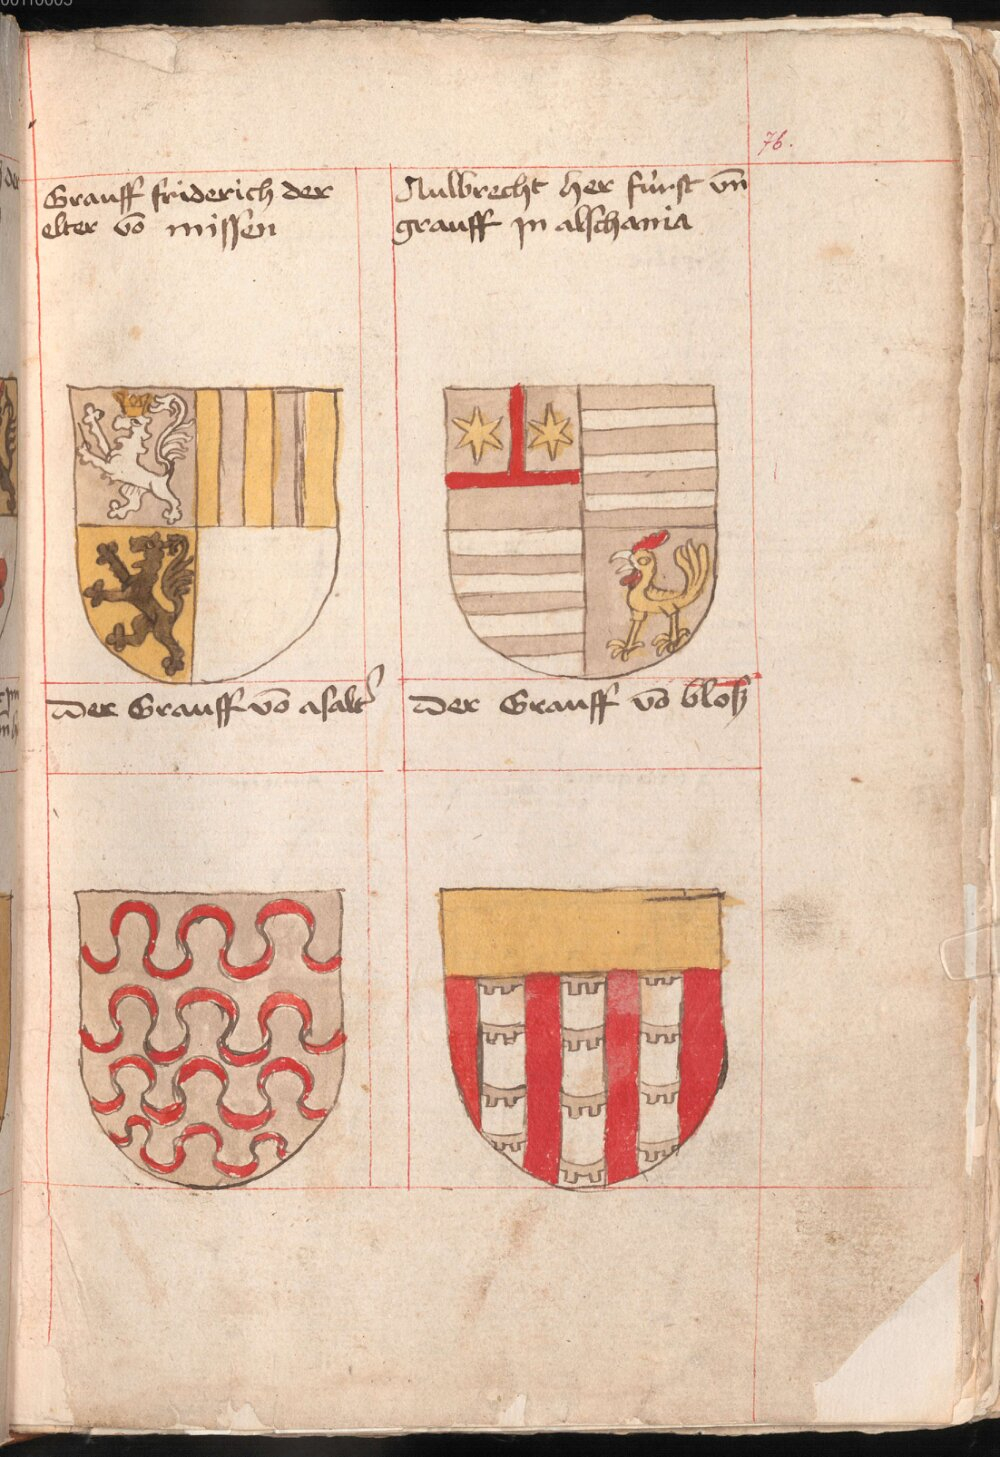 76.
Grauff friderich der
elter vō missen
Aulbrecht her fürst vn̄
grauff jn alschania
Der Grauff vō asalt
Der Grauff vō bloß